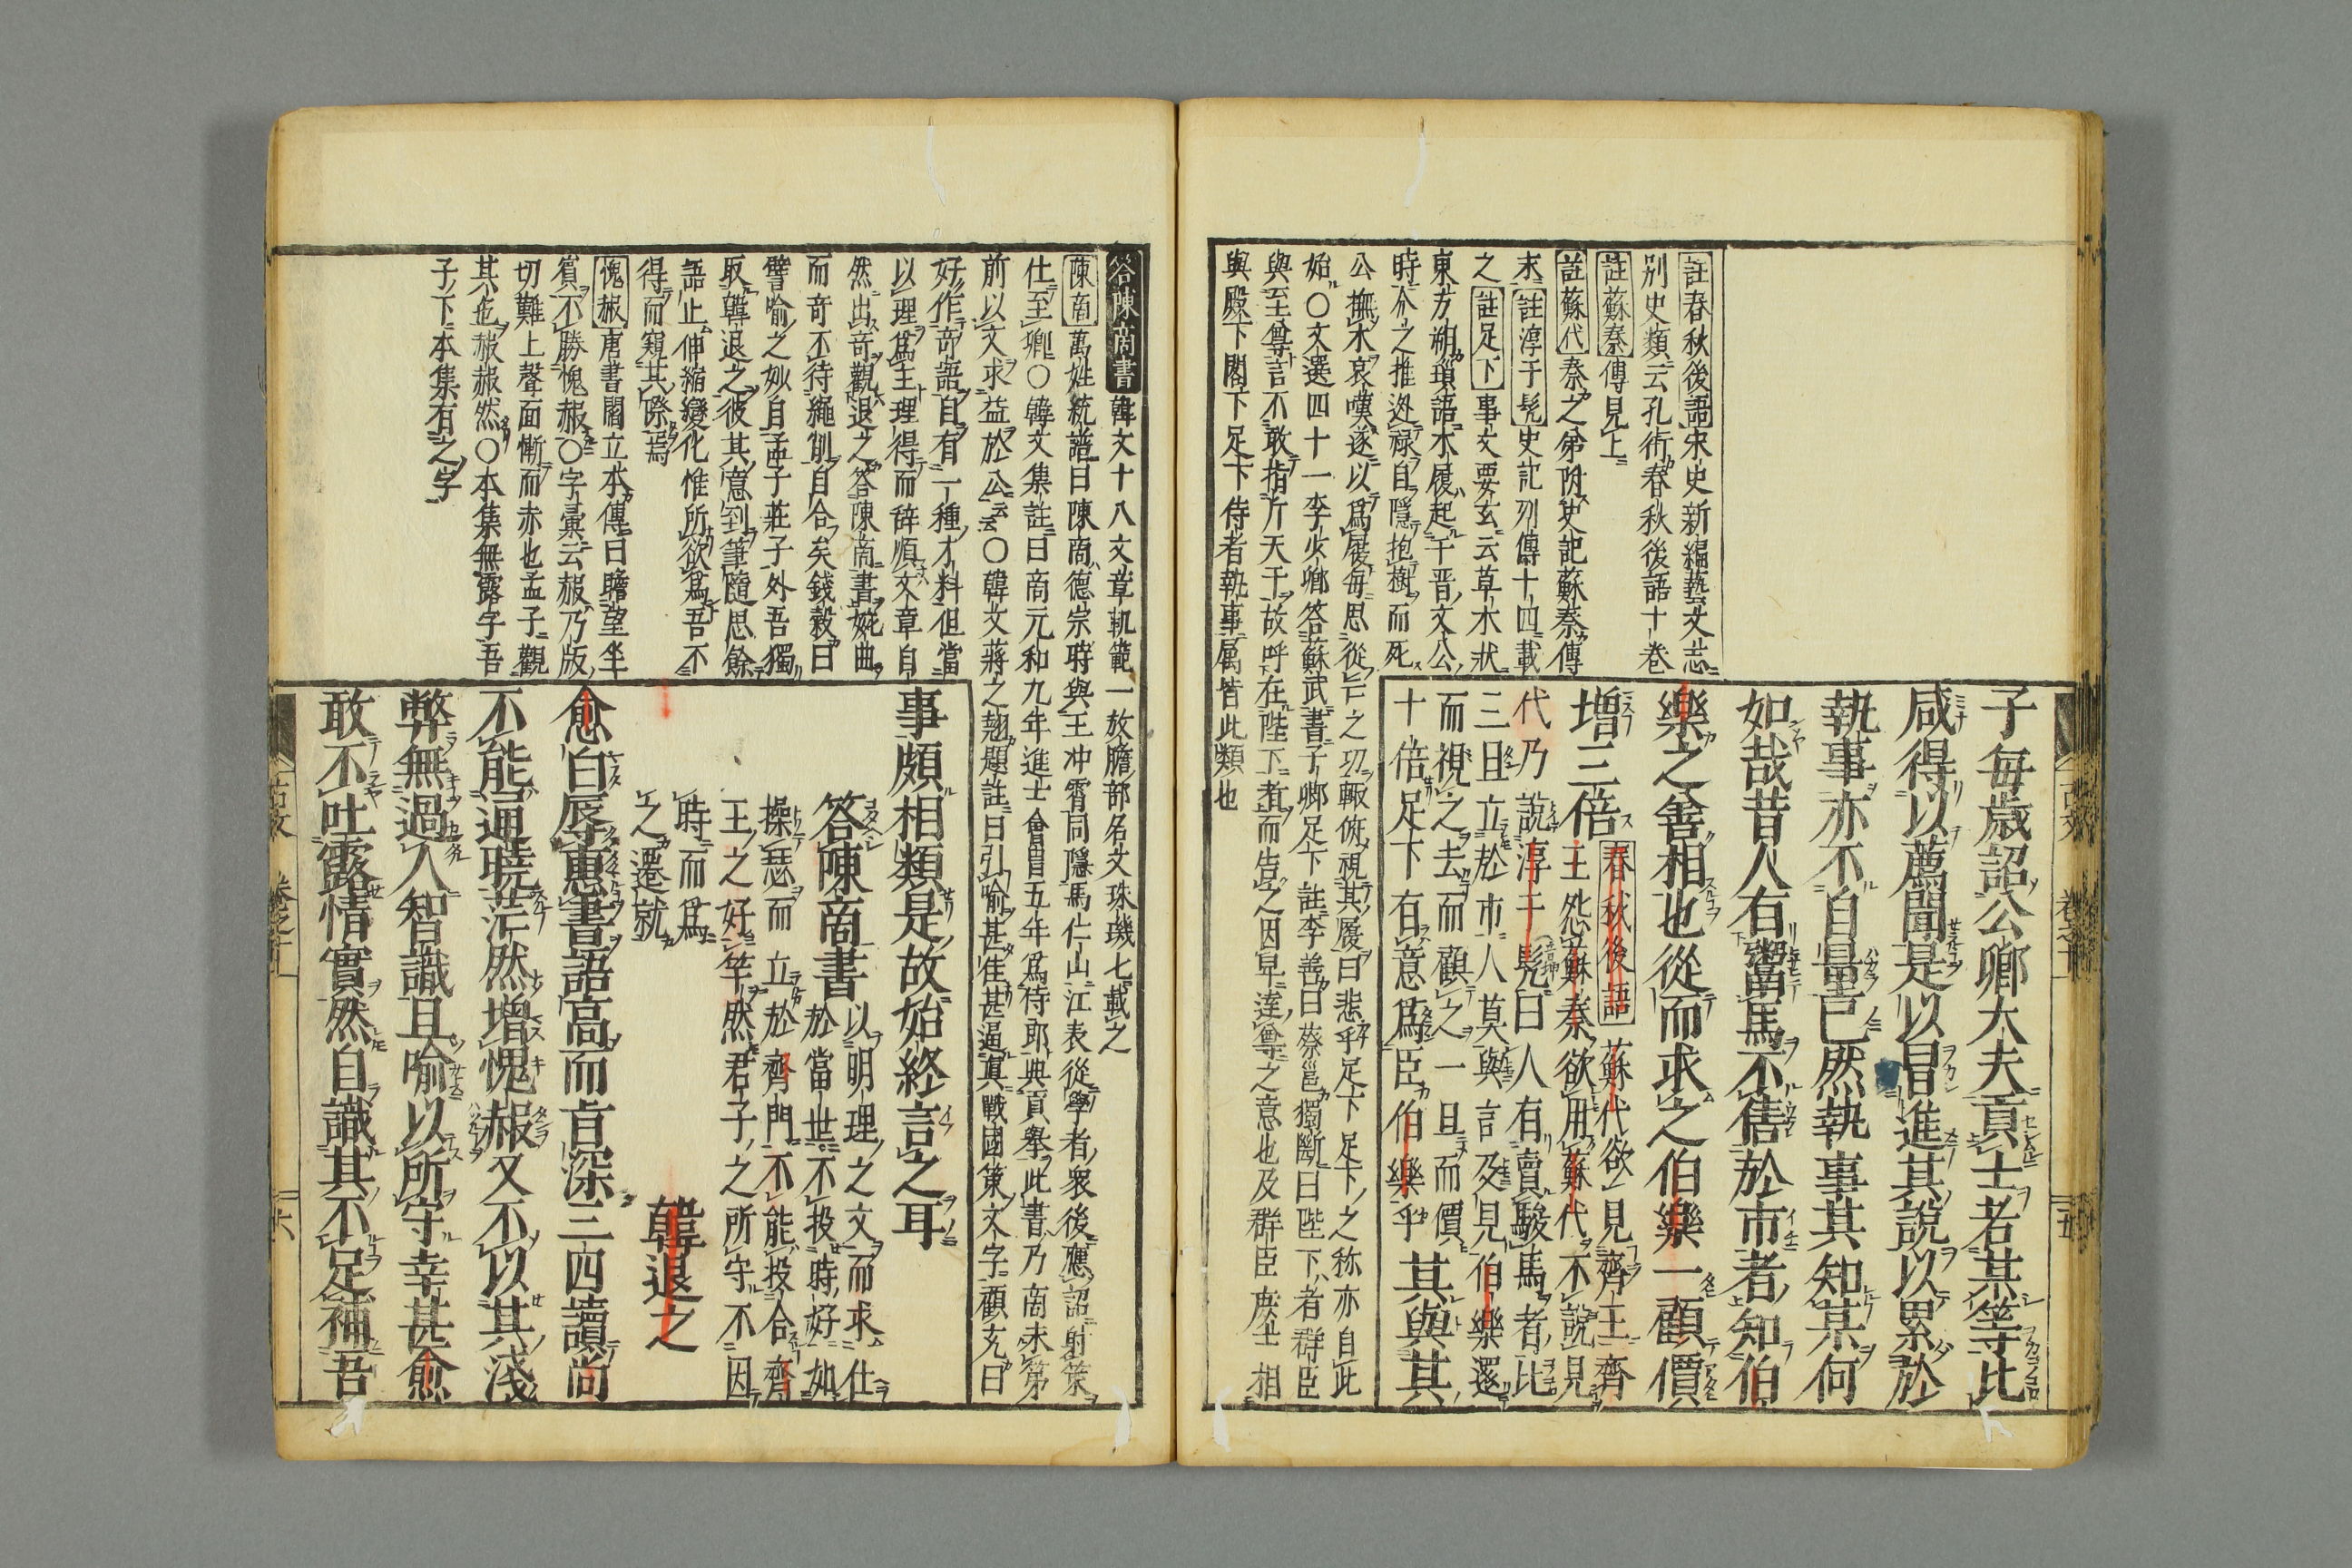 註春秋後語宋史新編藝文志
別史類云孔術春秋後語十卷
註蘇秦傳見上
註蘇代秦之弟附史記蘇秦傳
末註淳于髡史記列傳十四載
之註足下事文要玄云草木狀
東方朔瑣語木履起于晋文公
時介之推逃禄自隱抱樹而死
公撫木哀嘆遂以爲屐每思從亡之功輙俯視其履曰悲乎足下足下之称亦自此
始〇文選四十一李少卿答蘇武書子卿足下註李善曰蔡邕獨斷曰陛下者群臣
與至尊言不敢指斤天子故呼在陛下者而告之因卑達尊之意也及群臣庶士相
與殿下閣下足下侍者執事属皆此類也
子毎歳詔公卿大夫貢士者某等比
咸得以薦聞是以冒進其說以累於
執事亦不自量已然執事其知某何
如哉昔人有鬻馬不售於市者知伯
樂之善相也從而求之伯樂一顧價
增三倍春秋後語蘇代欲見齊王齊
王怨蘇秦欲用蘇代不說見
代乃說淳于髡曰人有賣駿馬者比
三且立於市人莫與言及見伯樂還
而視之去而顧之一旦而價
十倍足下有意爲臣伯樂乎其與其
古文
卷之十
廿
答陳商書韓文十八文章軌範一放膽部名文珠璣七載之
陳商萬姓統譜曰陳商德宗時與王冲霄同隱馬仁山江表從學者衆後應詔射策
仕至卿〇韓文集註曰商元和九年進士會昌五年爲侍郎典貢舉此書乃商未第
前以文求益於公云云〇韓文蔣之翹題註曰引喻甚佳甚逼真戰國策文字顧充曰
好作奇語自有一種才料但當
以理爲主理得而辞順文章自
然出奇觀退之答陳商書婉曲
而奇不待繩削自合矣錢穀曰
譬喻之妙自孟子莊子外吾獨
取韓退之彼其意到筆隨思餘
語止伸縮變化惟所欲爲吾不
得而窺其際焉
愧赧唐書閻立本傳曰瞻望坐
賓不勝愧赧〇字彙云赧乃版
切難上聲面慚而赤也孟子觀
其色赧赧然〇本集無露字吾
子下本集有之字
事頗相類是故始終言之耳
答陳商書以明理之文而求仕
於當世不投時好如
操瑟而立於齊門不能投合齊
王之好竽然君子之所守不因
時而爲
之遷就
韓退之
愈白辱惠書語高而旨深三四讀尚
不能通曉茫然增愧赧又不以其淺
弊無過人智識且喻以所守幸甚愈
敢不吐露情實然自識其不足補吾
古文
六